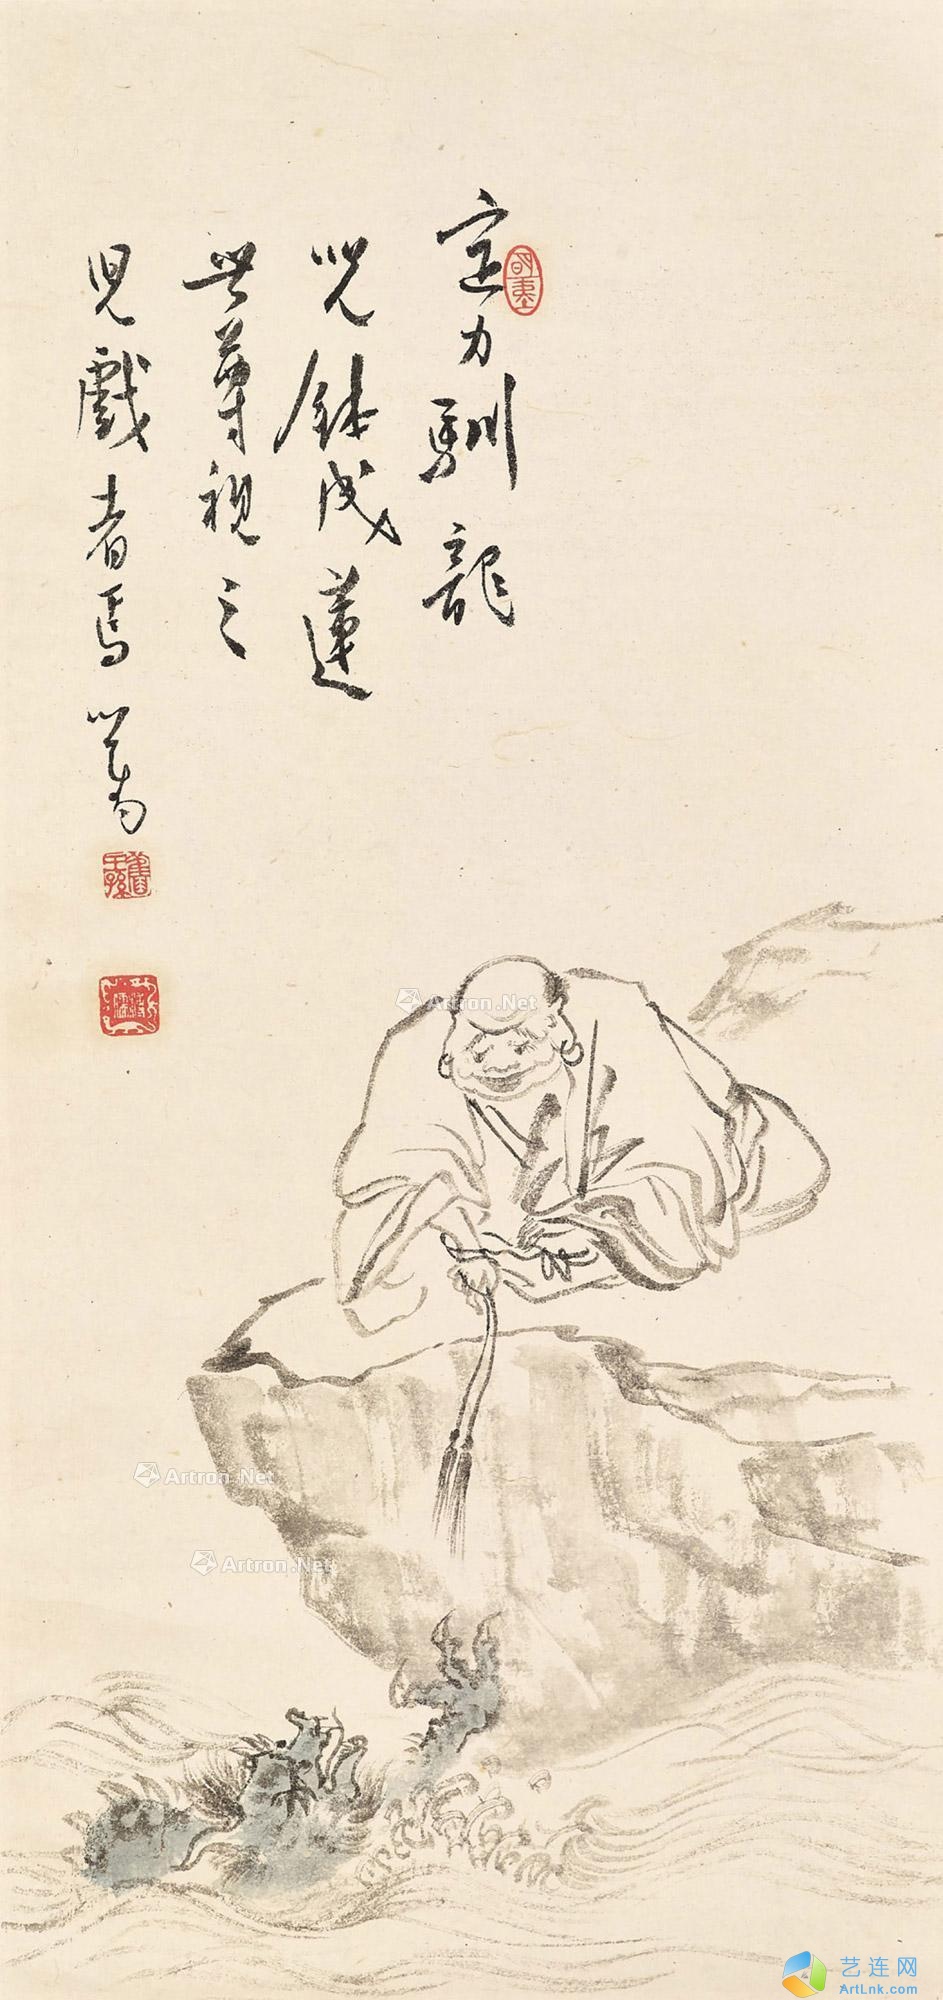 定力馴龍
咒鉢成蓮
世尊視之
児戲者焉
舊王孫
Artron.Net
Artron.Net
Artron.Net
艺连网
ArtLnk.com